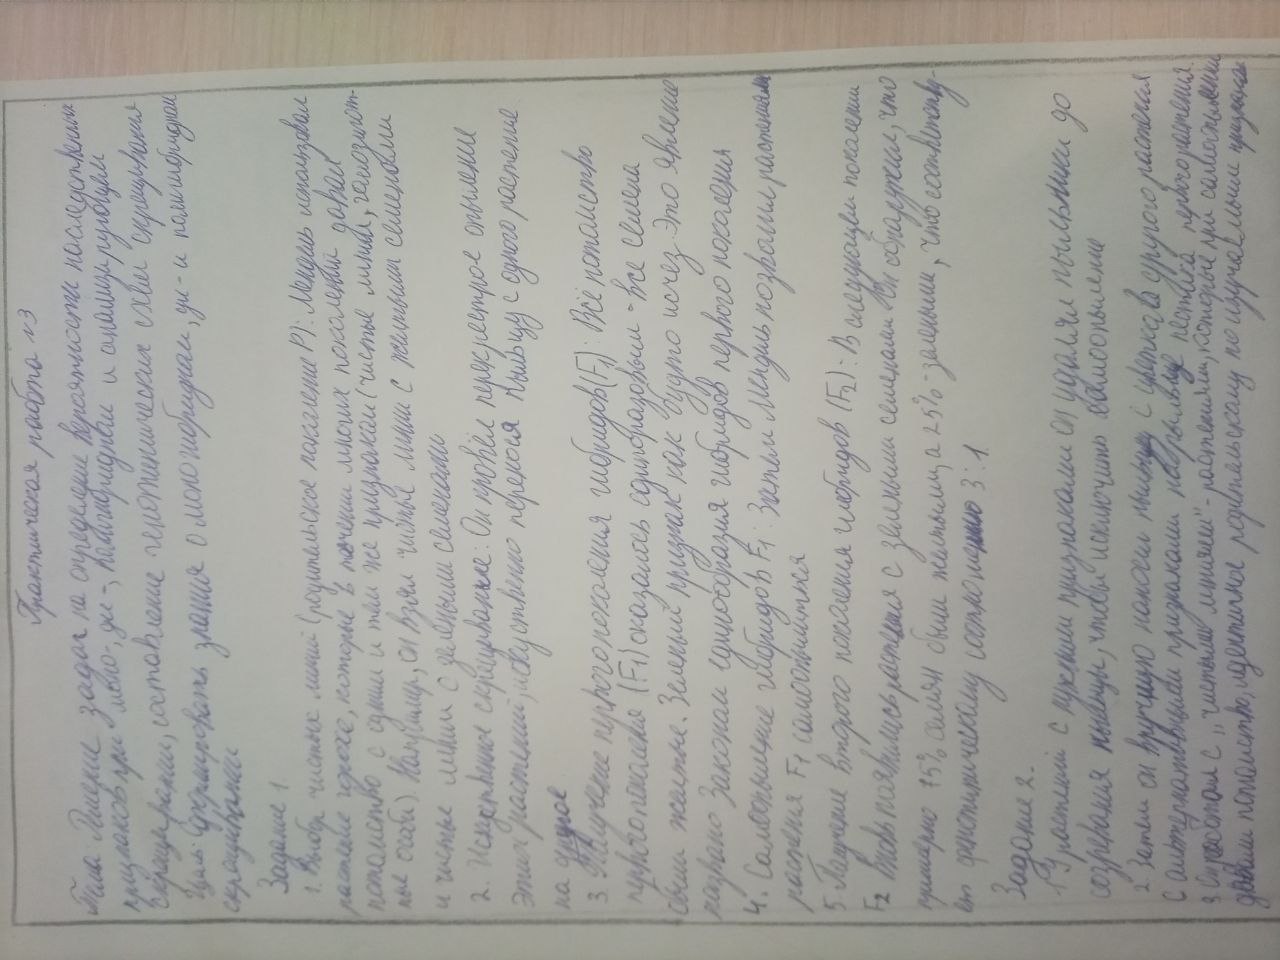 Практическая работа №3
Тема: Решение задач на определение вероятности наследственных
признаков при моно-, ди-, полигибридном и анализирующем
скрещивании, составление генотипических схем скрещивания
Цель: Сформировать знания о моногибридном, ди- и полигибридном
скрещивании
Задание 1.
1. Выбор чистых линий (родительское поколение P): Мендель использовал
растение гороха, которые в течении многих поколений давали
потомство с одним и тем же признаком (чистые линии, гомозигот-
ные особи). Например, он взял чистые линии с желтыми семенами
и чистые линии с зелеными семенами
2. Искуственное скрещивание: Он провёл перекрестное опыление
этих растений, искуственно перенося пыльцу с одного растение
на другое
3. Получение первого поколения гибридов (F1): Всё потомство
первого поколения (F1) оказалось единообразным - все семена
были желтые. Зеленый признак как будто исчез. Это явление
названо законом единообразия гибридов первого поколения
4. Самоопыление гибридов F1: Затем Мендель позволил растениям
растения F1 самоопылиться
5. Получение второго поколения гибридов (F2): В следующем поколении
F2 вновь появились растения с зелеными семенами. Он обнаружил, что
примерно 75% семян были желтыми, а 25% - зелеными, что соответству-
ет фенотипическому соотношению 3:1
Задание 2.
1. У растений с нужными признаками он удалял пыльники до
созревания пыльцы, чтобы исключить самоопыление
2. Затем он вручную наносил пыльцу с цветков другого растения
с альтернативным признаком на рыльце пестика первого растения.
3. Он работал с "чистыми линиями" - растениями, которые при самоопылении
давали потомство, идентичное родительскому по изучаемым признакам